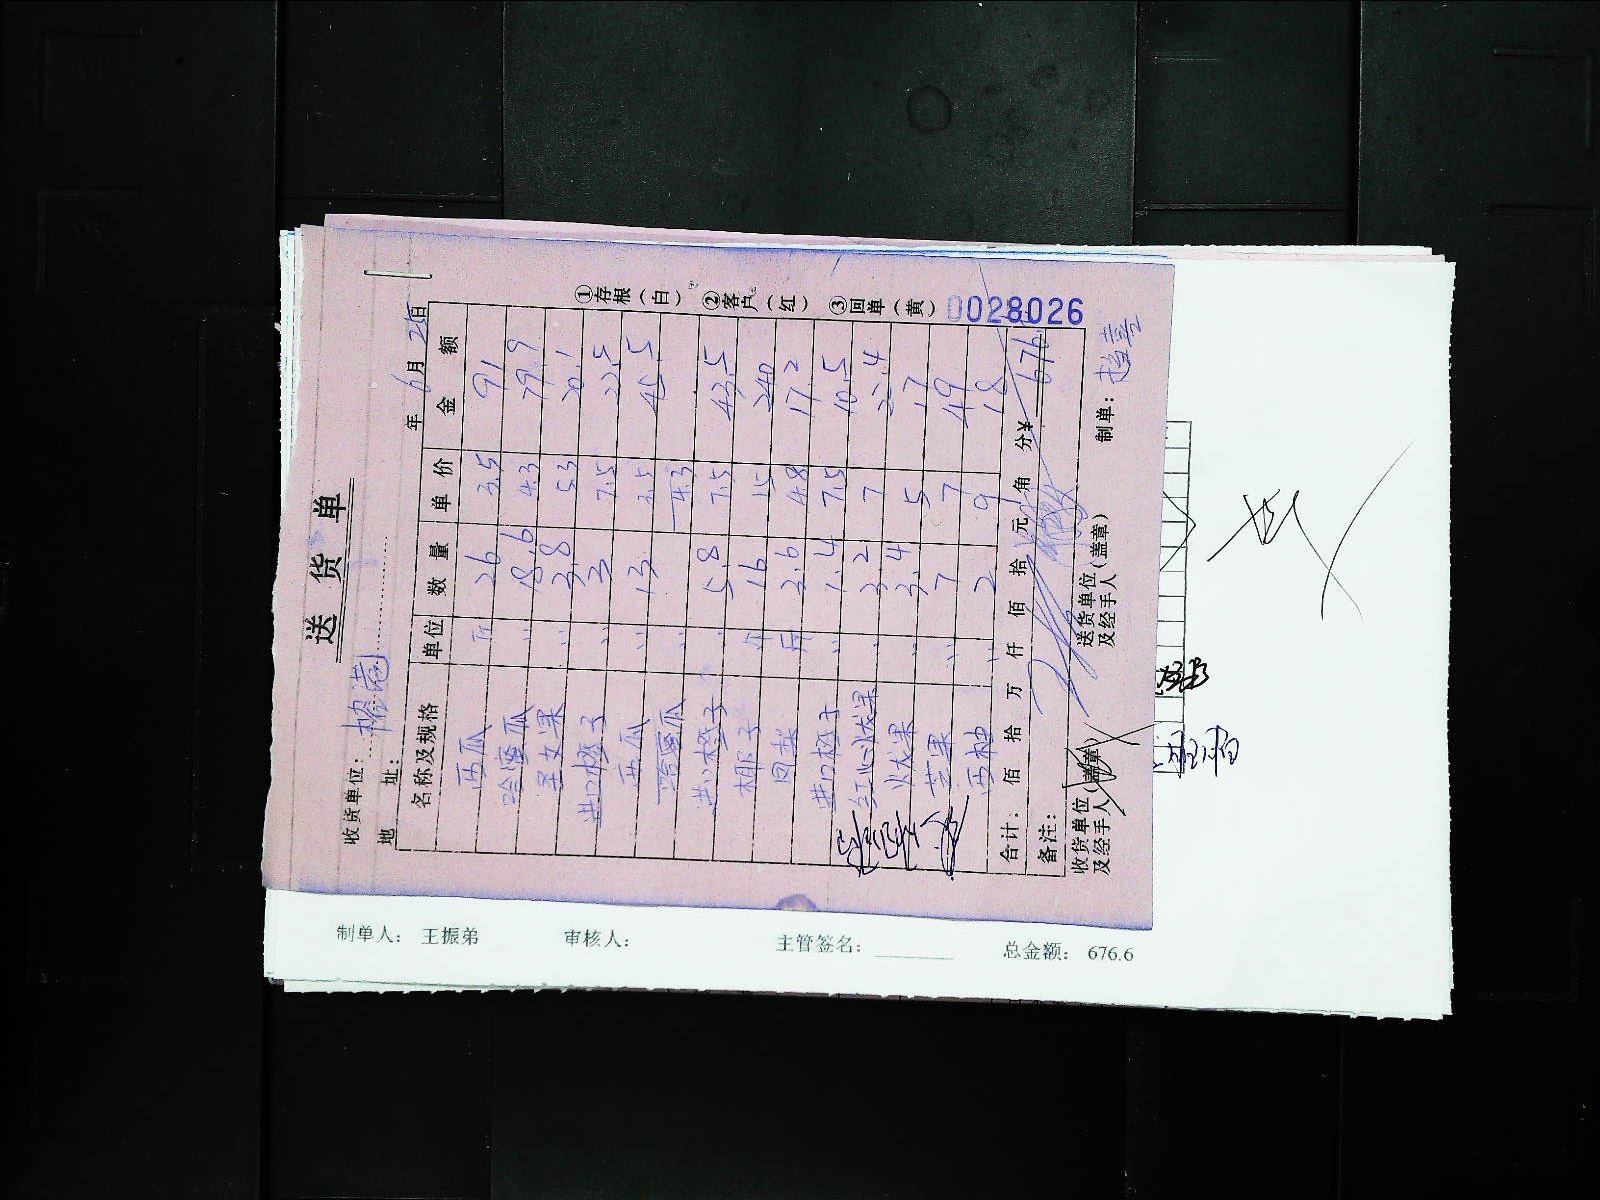 送 货 单
0028026
①存根（白） ②客户（红） ③回单（黄）
收货单位：
地 址：
年 6 月 25 日
名称及规格 单位 数 量 单 价 金 额
西瓜 斤 26 3.5 91
哈蜜瓜 〃 18.6 4.3 79.9
圣女果 〃 3.8 5.3 20.1
进口橙子 〃 3 7.5 22.5
西瓜 〃 13 3.5 45.5
哈蜜瓜 〃 4.3
进口橙子 〃 5.8 7.5 43.5
椰子 个 16 15 240
凤梨 斤 3.6 4.8 17.2
进口橙子 〃 1.4 7.5 10.5
红心火龙果 〃 3.2 7 22.4
火龙果 〃 3.4 5 17
芒果 〃 7 7 49
西柚 〃 2 9 18
合计： 佰 拾 万 仟 佰 拾 元 角 分 ¥ 676
备注：
收货单位（盖章）
及经手人
送货单位（盖章）
及经手人
制单：
制单人： 王振弟 审核人： 主管签名： 总金额： 676.6